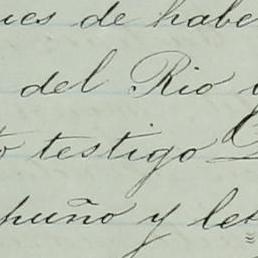 ues de habe
del Rio
to testigo
puño y let